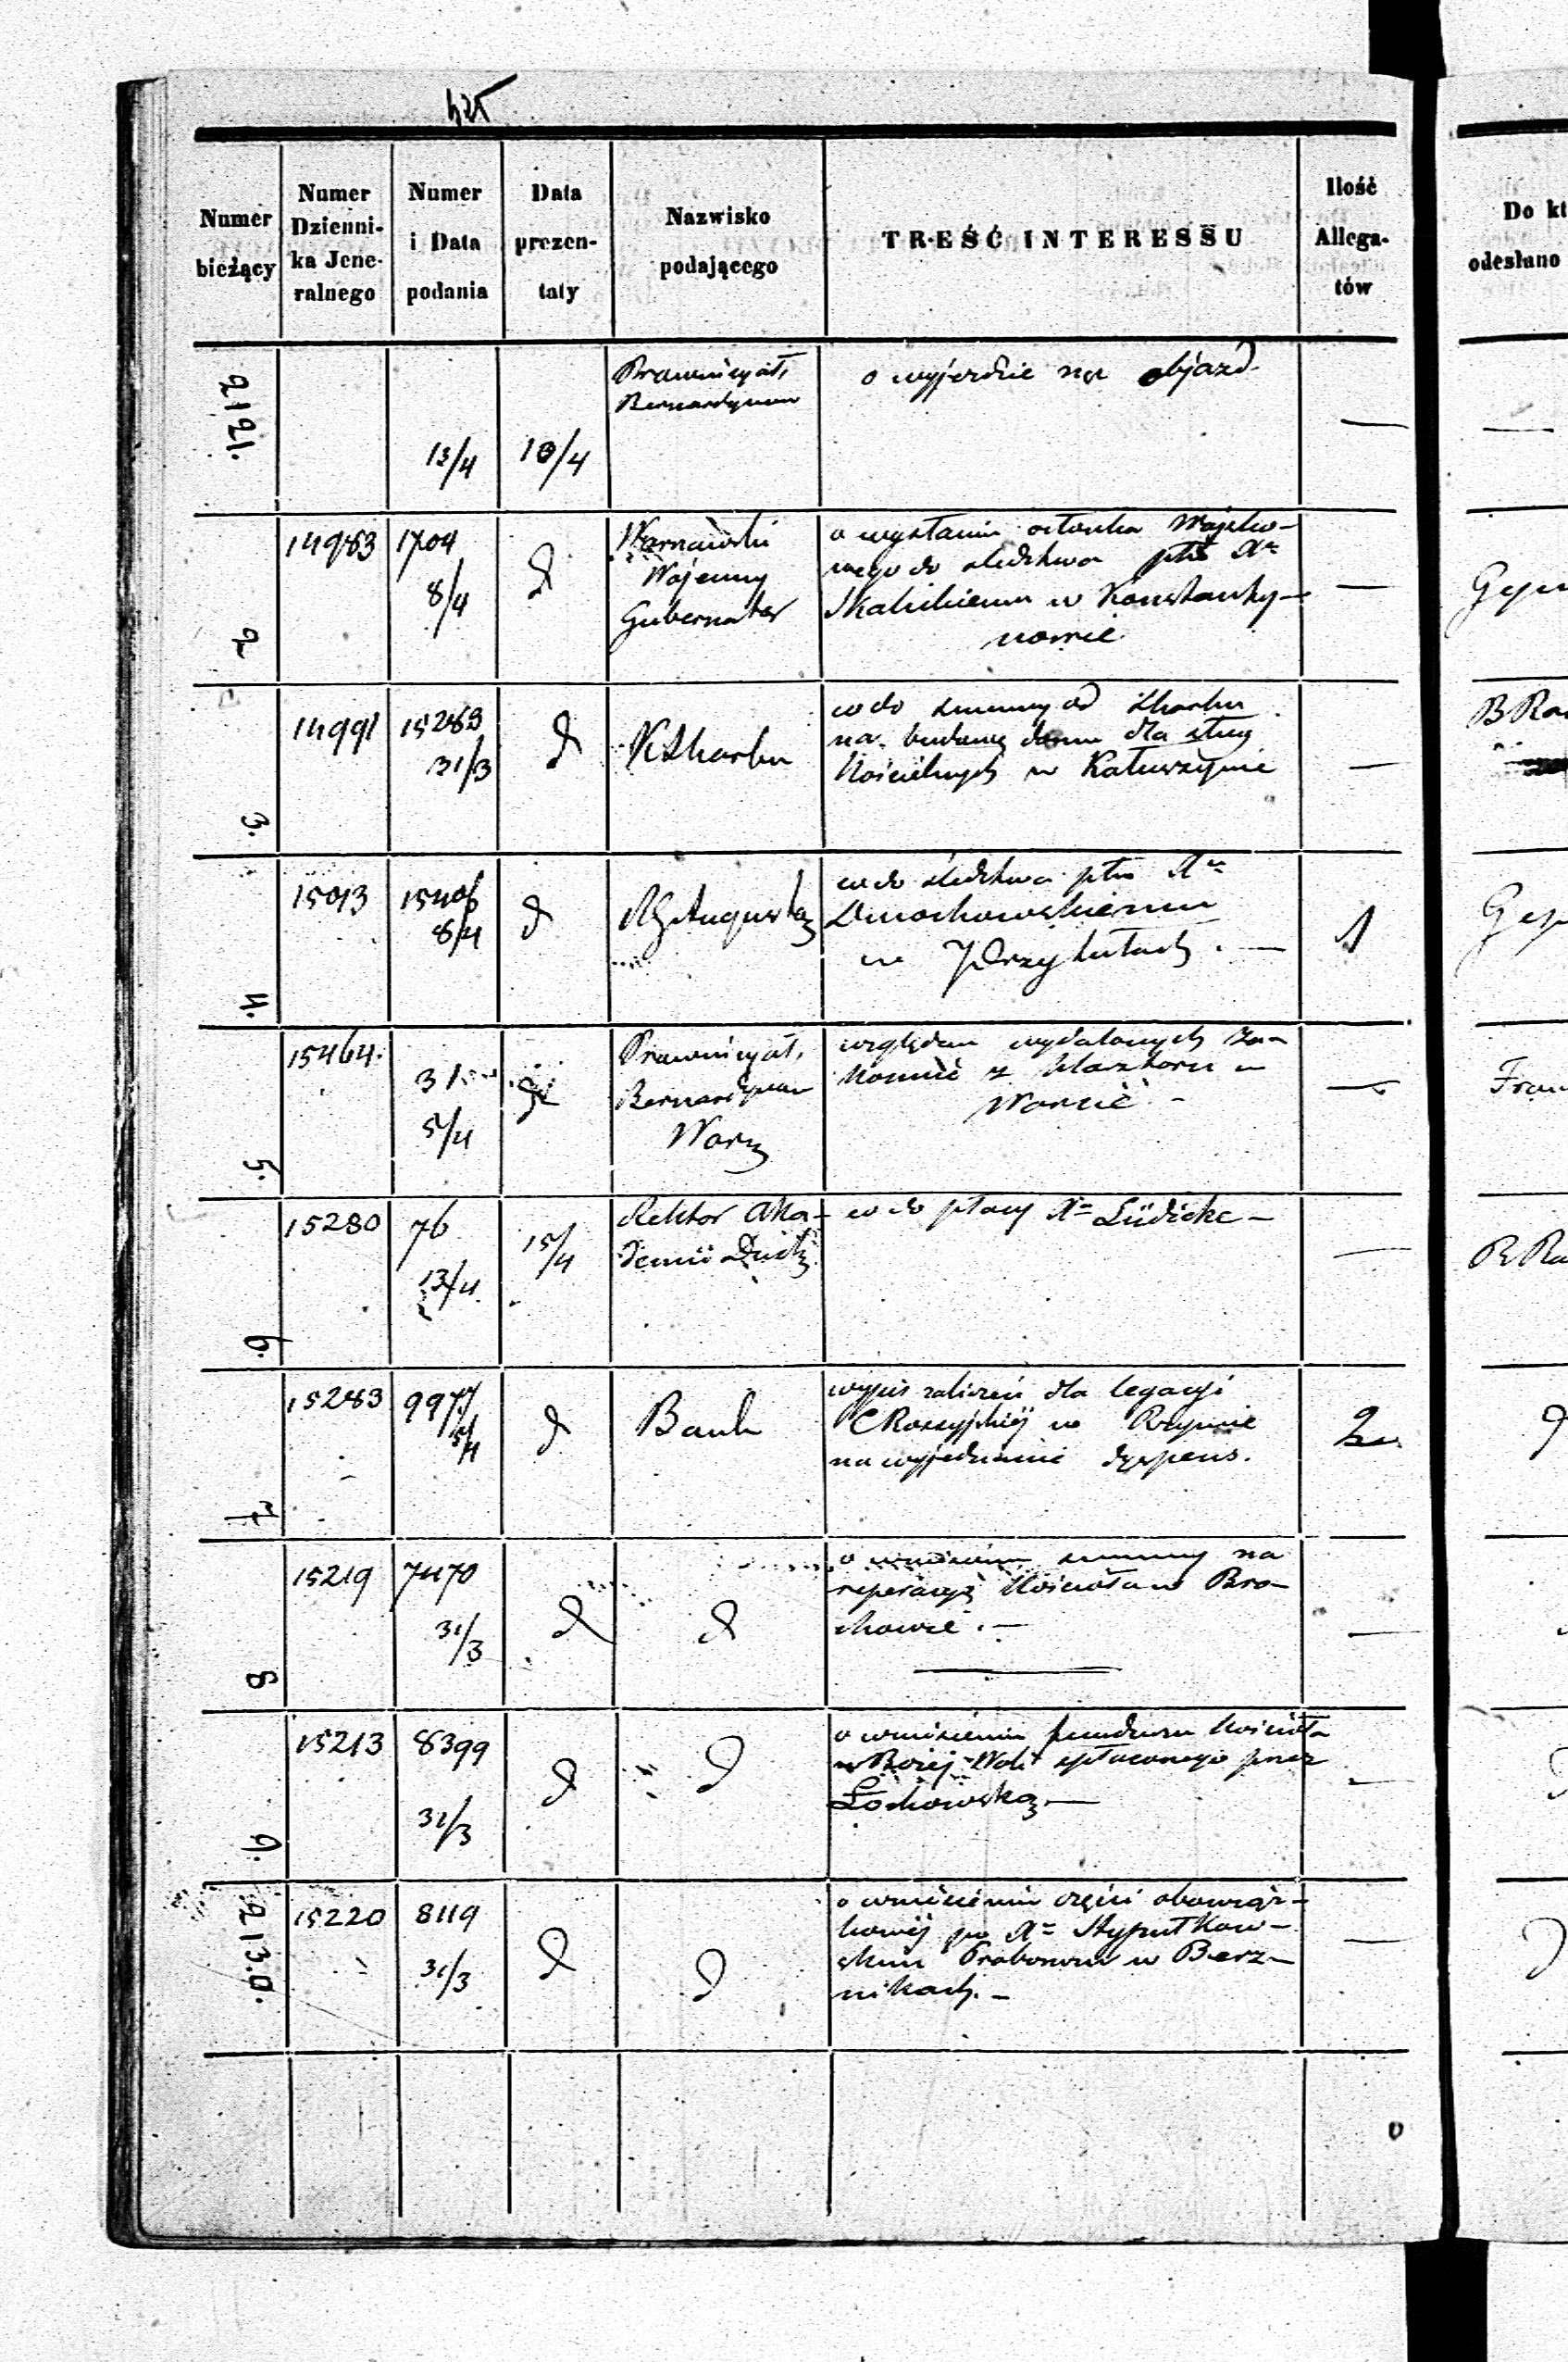 Numer bieżący
Numer Dzienni- ka Jene- ralnego
Numer i Data podania
Data prezen- taty
Nazwisko podającego
TREŚĆ INTERESSU
Ilość Allega- tów
Do kt
odesłano
2121.
13/4
13/4
Prowincyał
Bernardynów
o wyjezdzie na objazd
—
2
14983
1704
8/4
d
Warszawski
Wojenny
Gubernator
o wysłaniu członka Wojsko-
wego do śledztwa pko Xu
Skalskiemu w Konstanty-
nowie
—
3.
14991
15263
31/3
d
KSkarbu
co do summy od Skarbu
na budowę domu dla sług
Kościelnych w Kałuszynie
—
B Ra
4.
15013
15406
8/4
d
RGAugustow
co do śledztwa pko Xu
Dmochowskiemu
w Przytułach. —
1
5.
15464.
31
5/4
d
Prowincyał
Bernardynów
Warsz
względem wydalonych za-
konnic z klasztoru w
Warcie —
—
Fran
6.
15280
76
13/4
15/4
Rektor Aka-
demii Duch
co do płacy Xa Lüdicke —
—
R Ra
7
15283
9977
5/4
d
Bank
wypis zaliczeń dla legacyi
CRossyjskiej w Rzymie
na wyjednanie dyspens.
2
8
15219
7470
31/3
d
d
o wniesieniu summy na
reperacyę Kościoła w Bro-
chowie. —
—
9.
15213
8399
31/3
d
d
o wniesieniu funduszu Kościoła
w Bożej-Woli spłaconego przez
Łochowską —
—
2130.
15220
8119
31/3
d
d
o wniesieniu części obowiąz-
kowej po Xu Stypułkow-
skim Proboszczu w Berz-
nikach. —
—